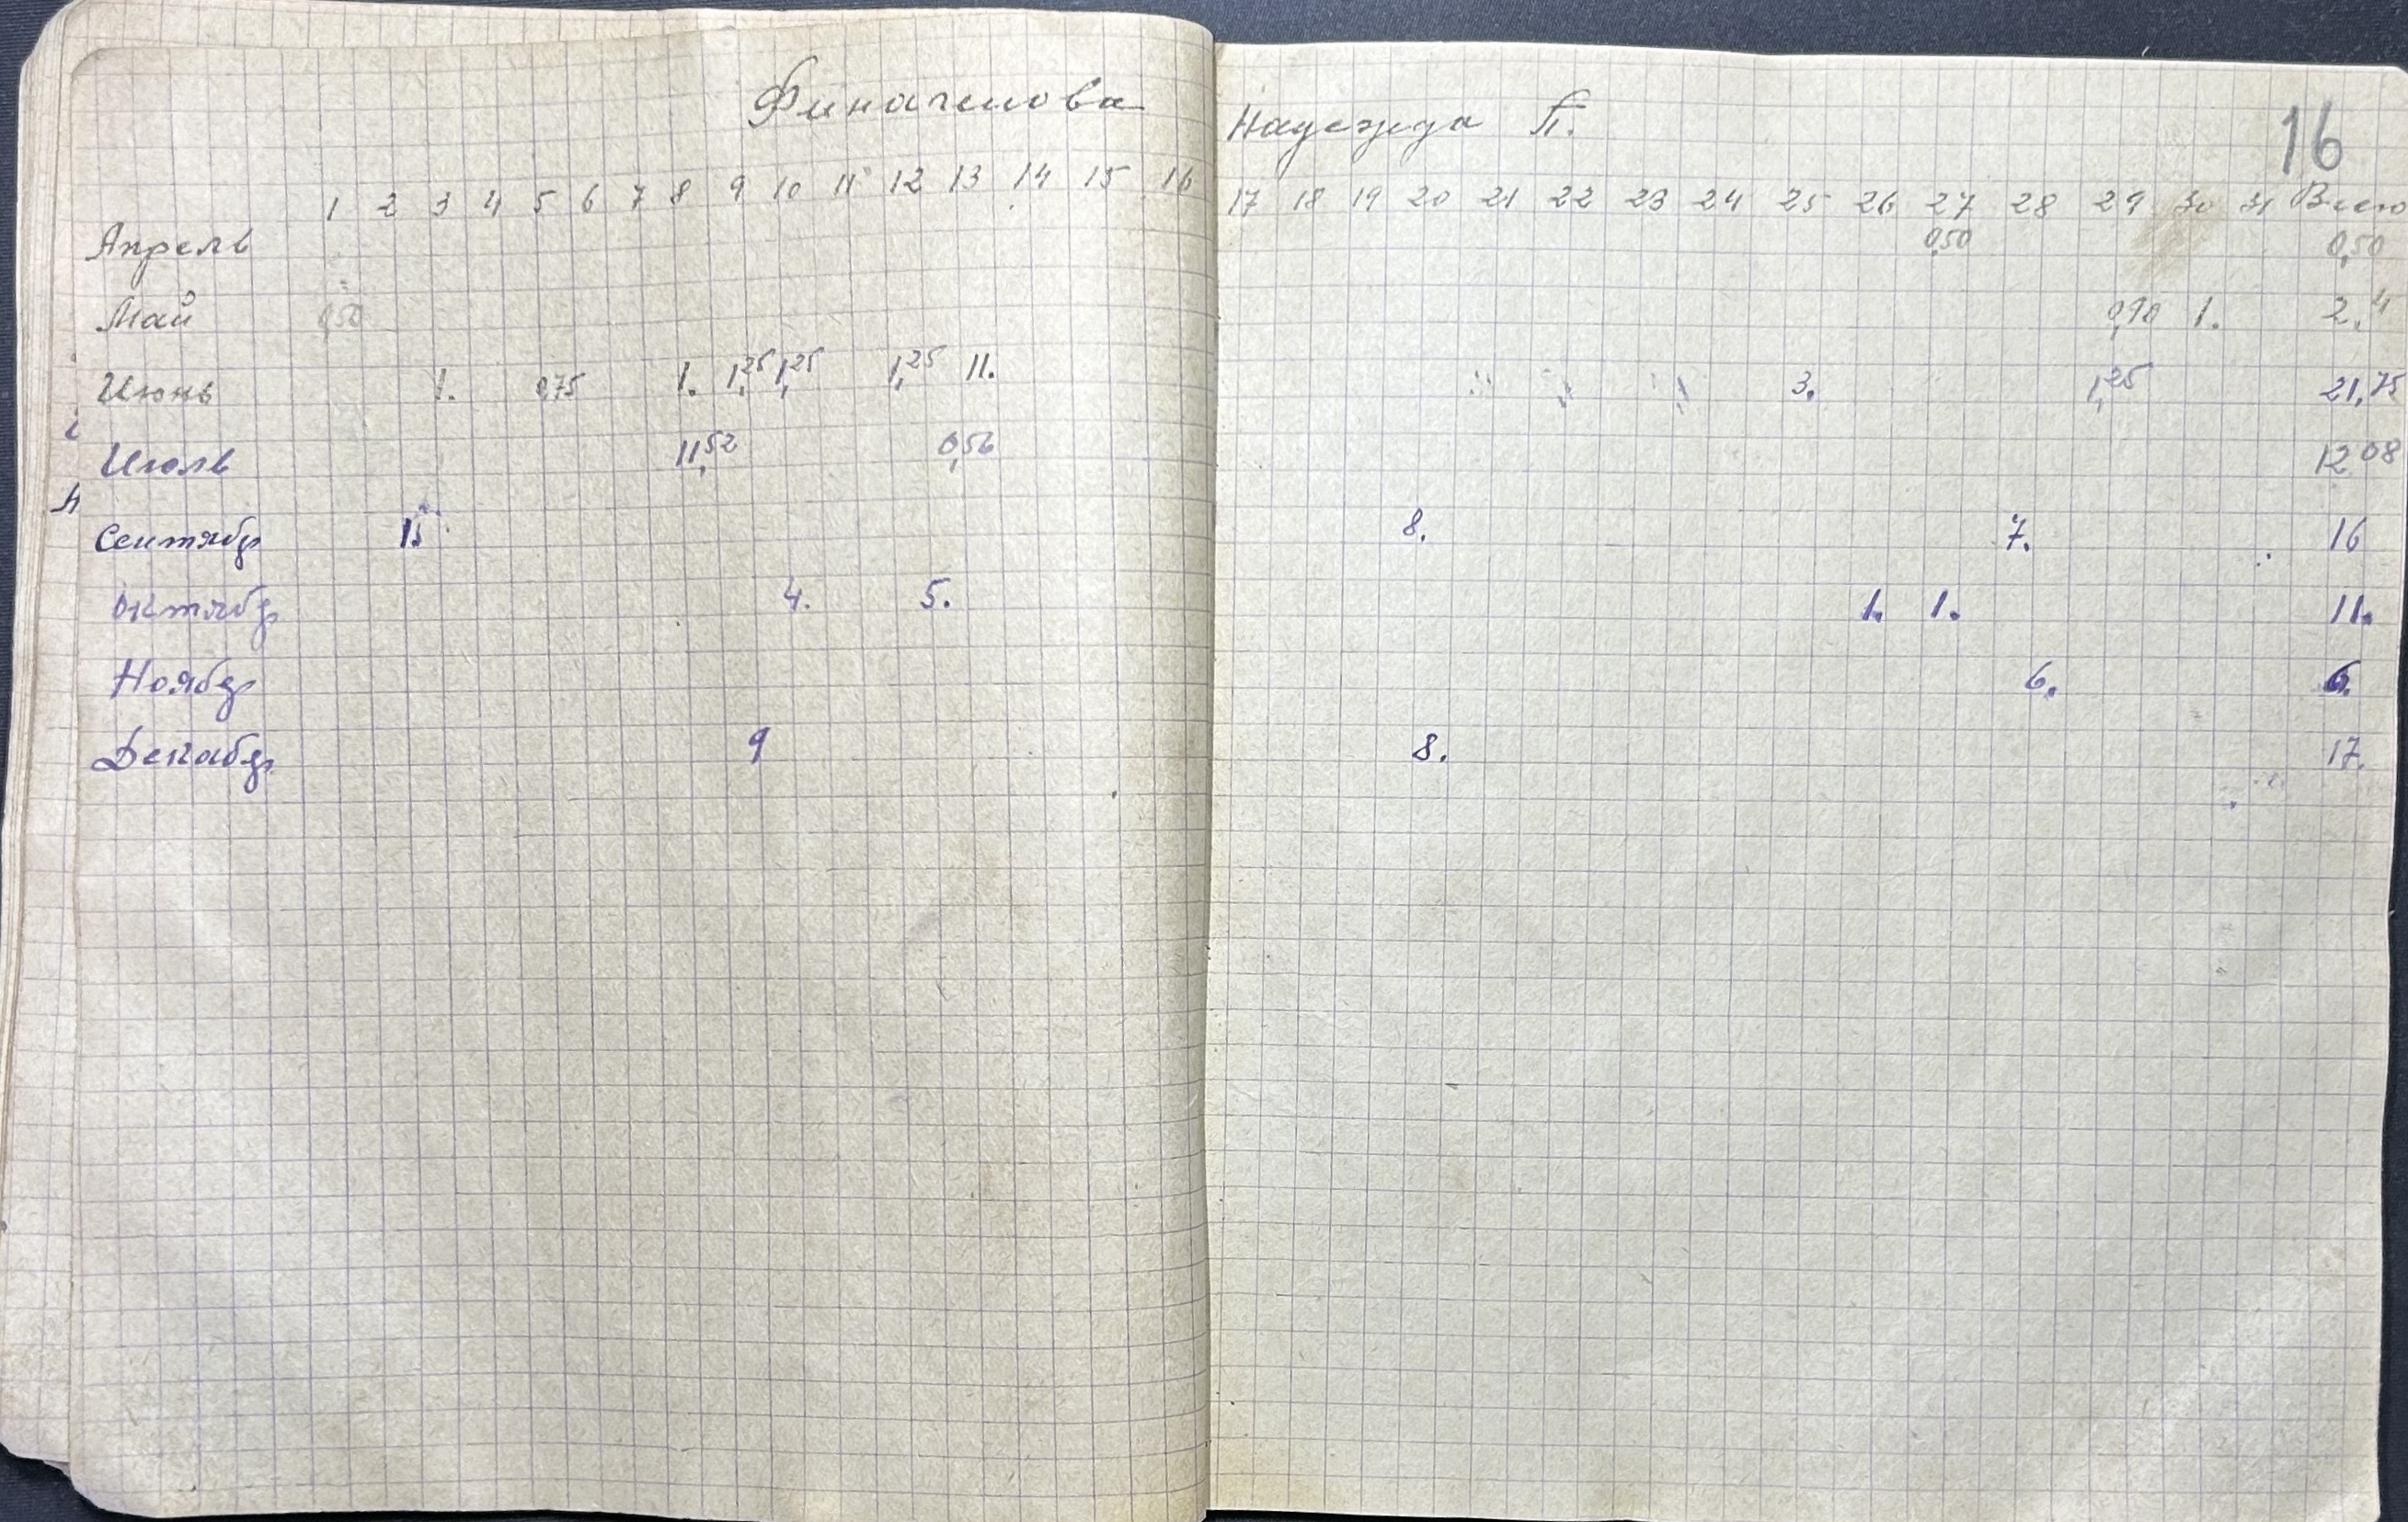 Финагенова Надежда П. 16
1 2 3 4 5 6 7 8 9 10 11 12 13 14 15 16 17 18 19 20 21 22 23 24 25 26 27 28 29 30 31 Всего
Апрель 0,50 0,50
Май 0,50 0,90 1. 2,4
Июнь 1. 0,75 1. 1,25 1,25 1,25 11. 3. 1,25 21,75
Июль 11,52 0,56 12 08
Сентябр 1. 8. 7. 16
Октябр 4. 5. 1. 1. 11.
Ноябр 6. 6.
Декабр 9 8. 17.